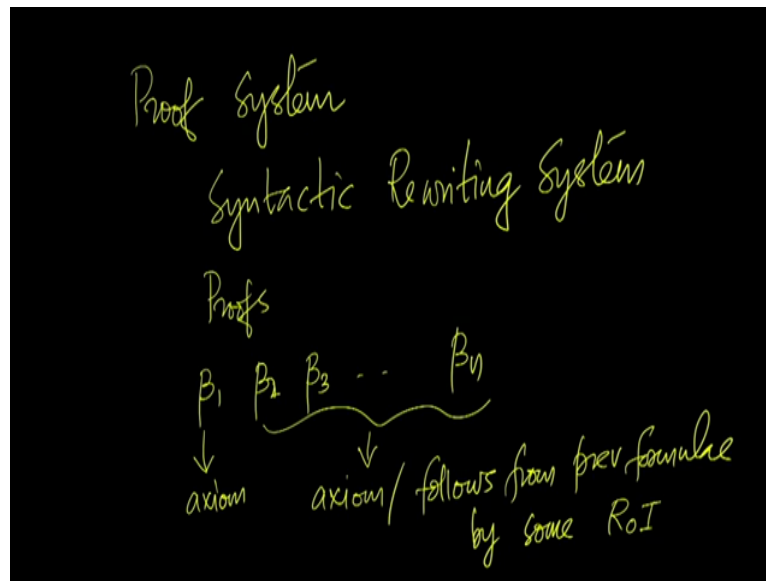 Proof System
Syntactic Rewriting System
Proofs
β₁ β₂ β₃ .. βₙ
axiom axiom/ follows from prev formulae
by some RoI